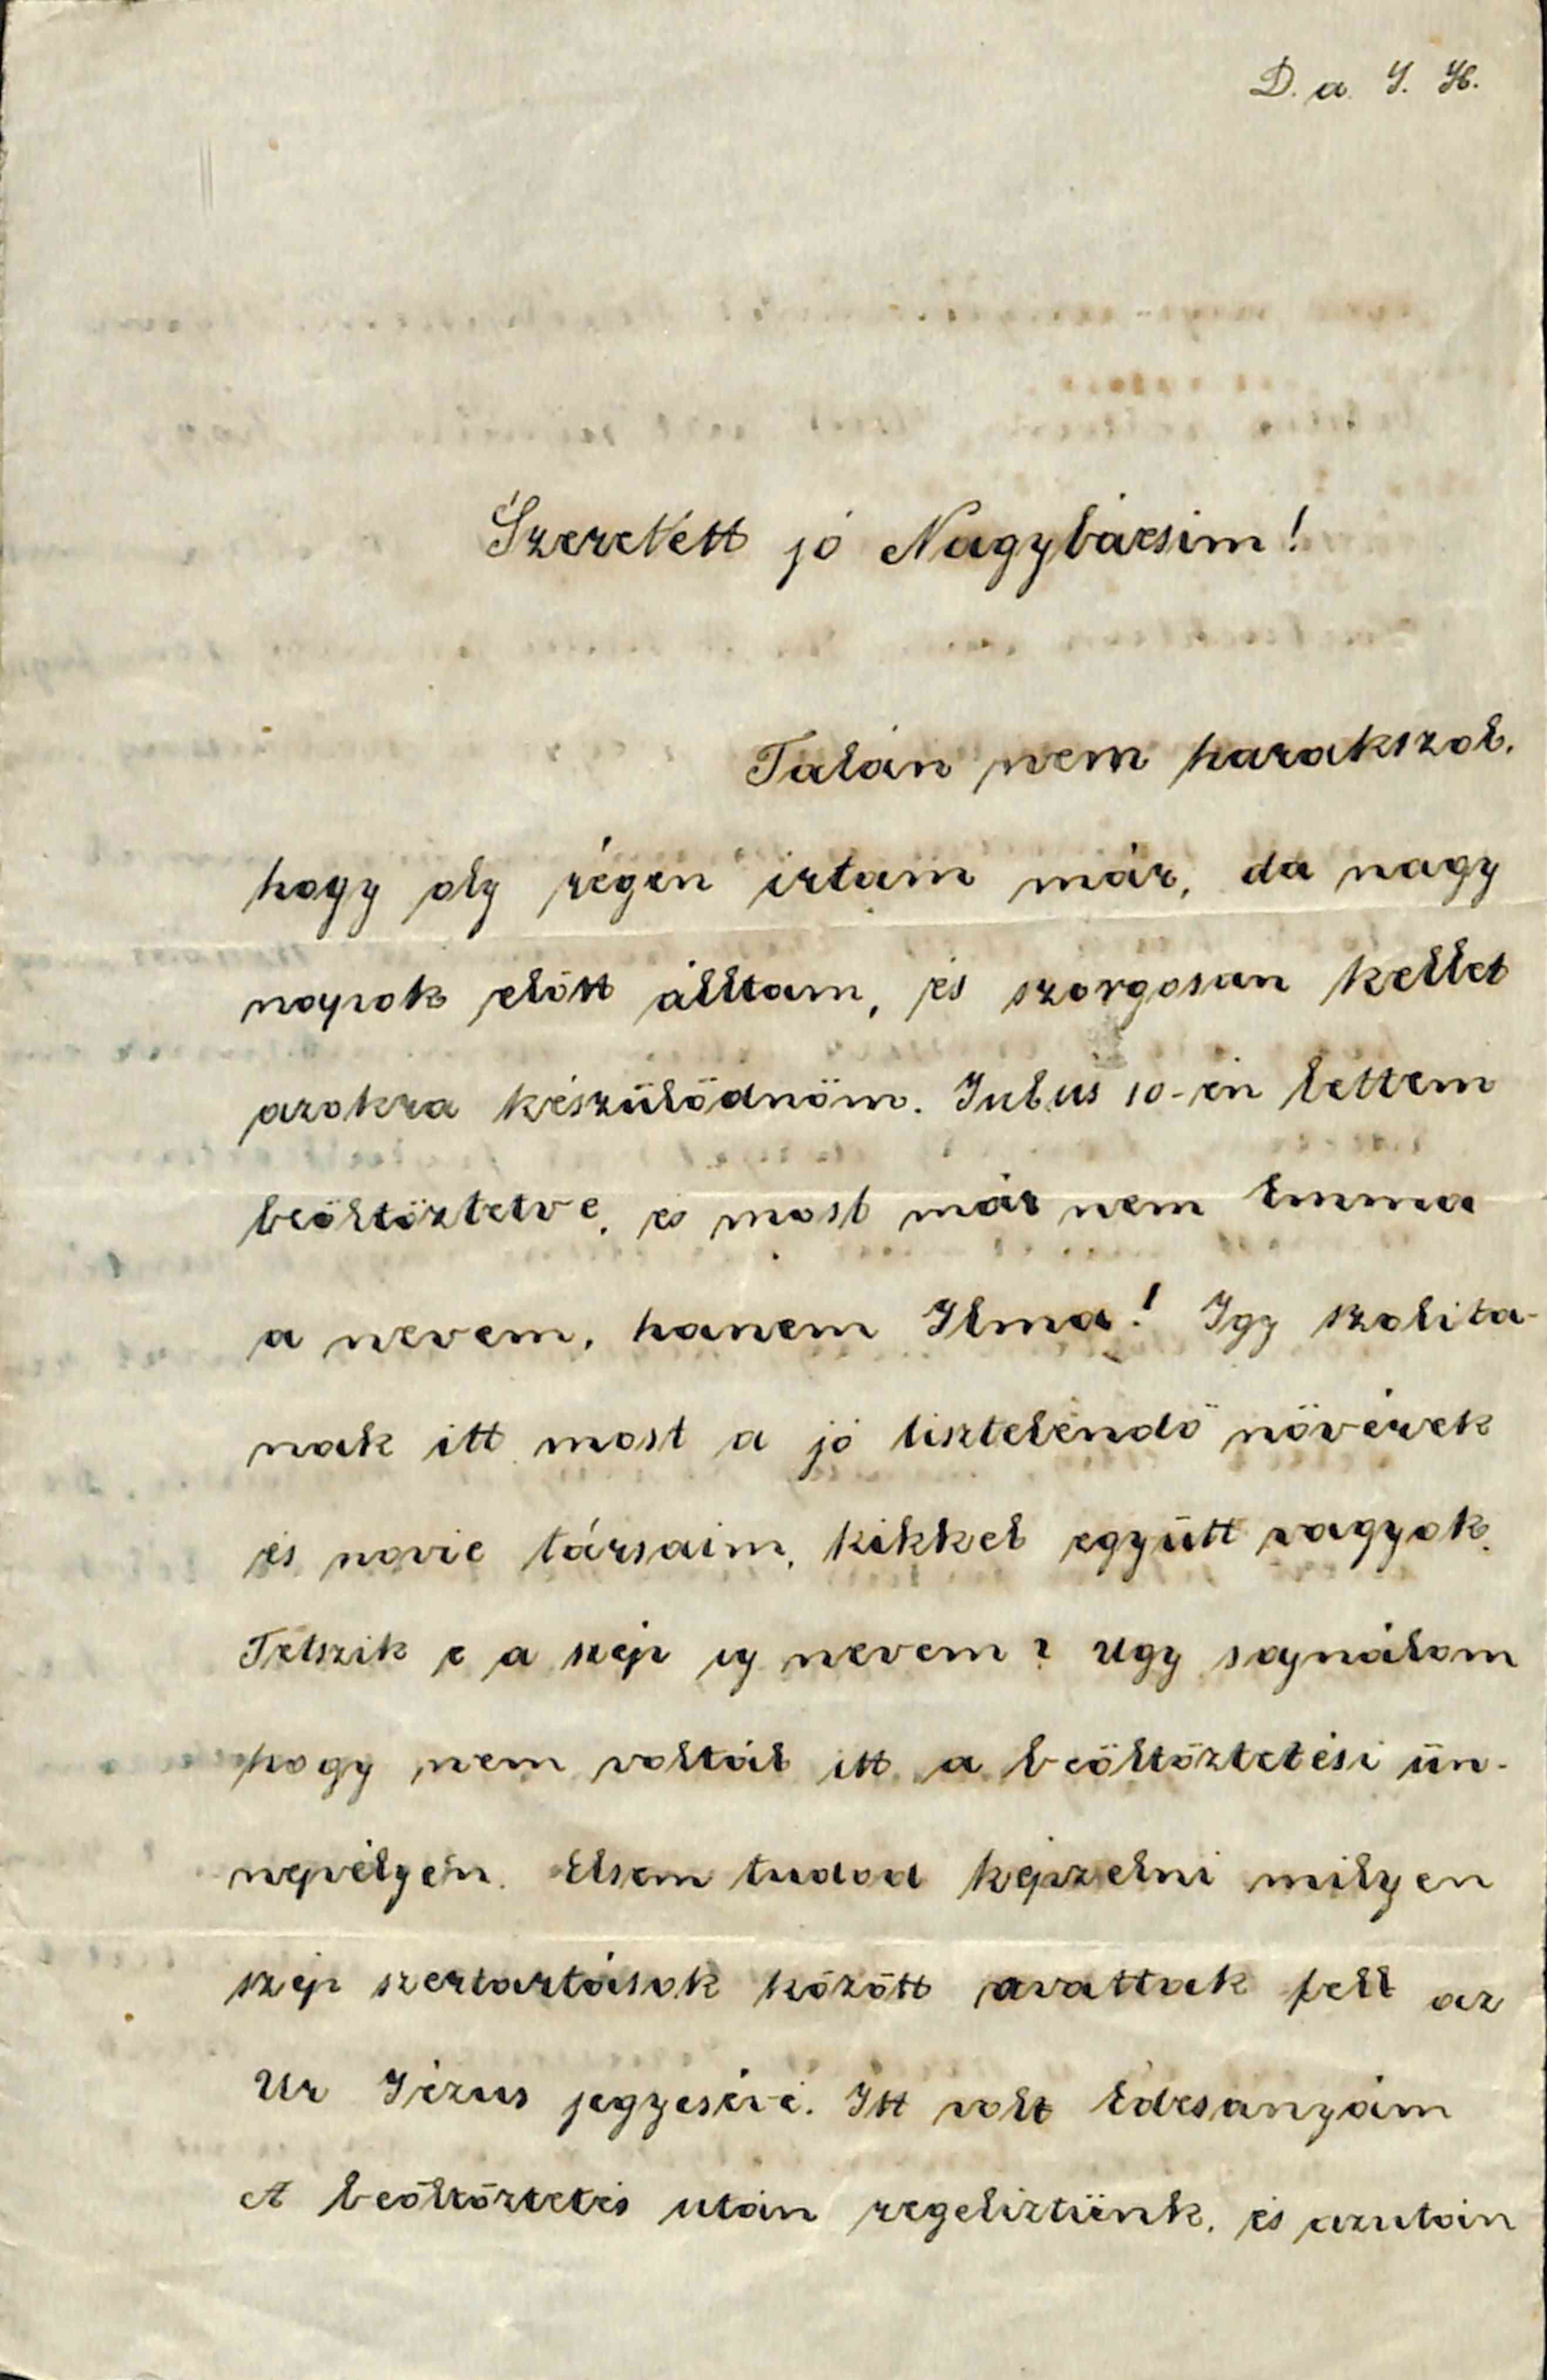 D. a. J. K.
Szeretett jó Nagybácsim!
Talán nem harakszol,
hogy oly régen irtam már, da nagy
napok előtt álltam, és szorgosan kellet
azokra készülödnöm. Julius 10-én lettem
beöltöztetve, es most már nem Emma
a nevem, hanem Ilma! Igy szolita-
nak itt most a jó tisztelendö növérek
és novic társaim, kikkel együtt vagyok.
Tetszik e a szép uj nevem? Ugy sajnálom
hogy nem voltál itt a beöltöztetési ün-
nepélyén. Elsem tudod képzelni milyen
szép szertartások között avattak fell az
Ur Jézus jegyesévé. Itt volt Édesanyám
A beöltöztetés után regeliztünk, és azután